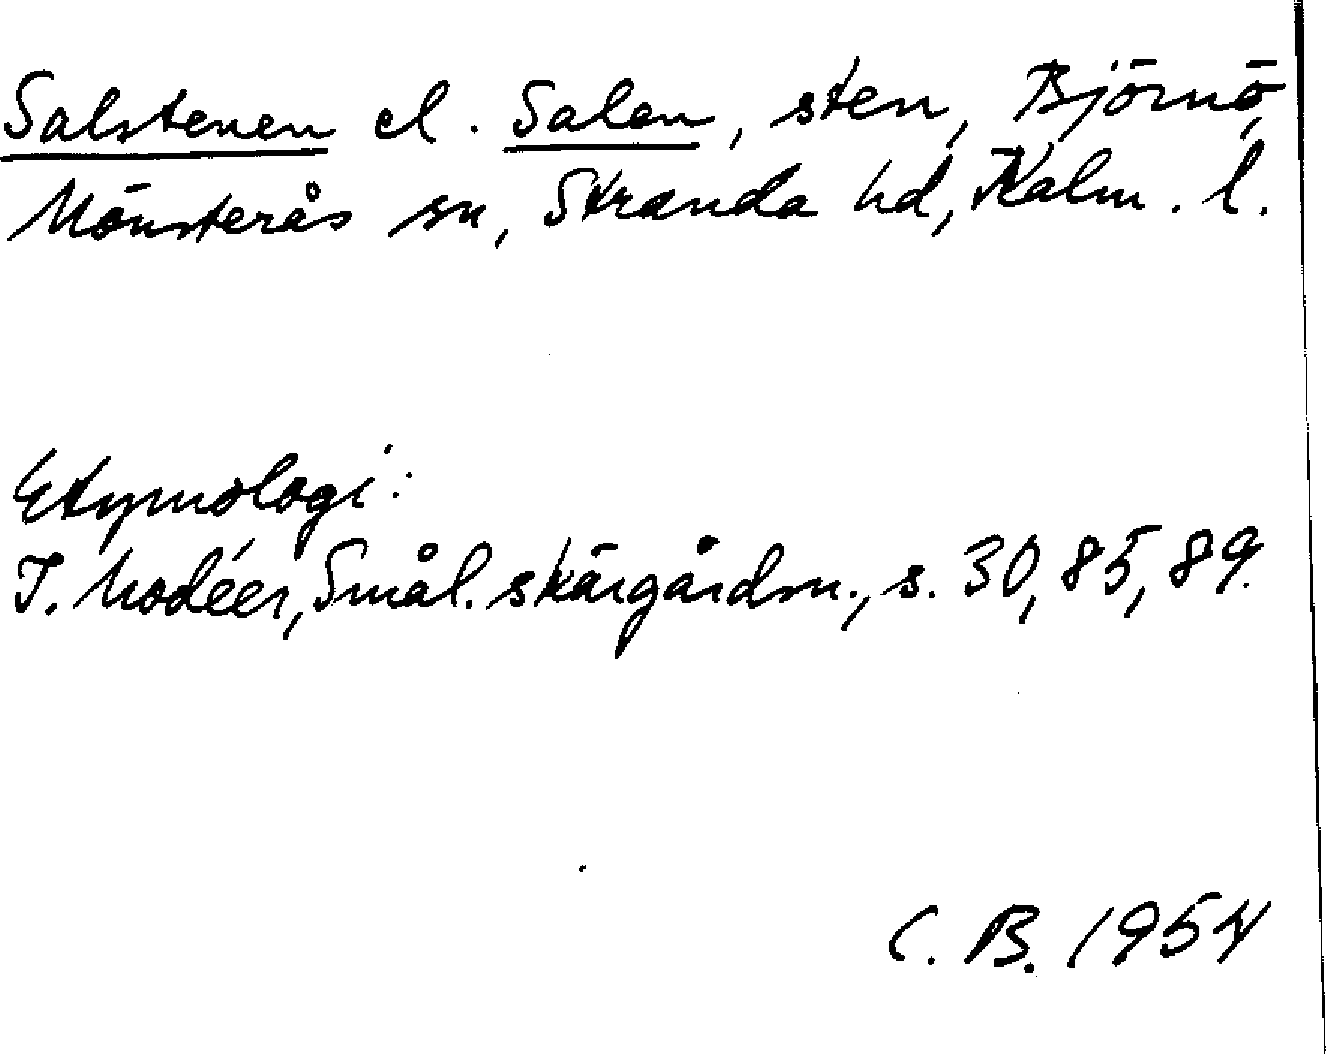 Salstenen el. Salen, sten, Björnö,
Mönsterås sn, Stranda hd, Kalm. l.
Etymologi:
I. Modéer, Smål. skärgårdsn., s. 30, 85, 89.
C. B. 1954